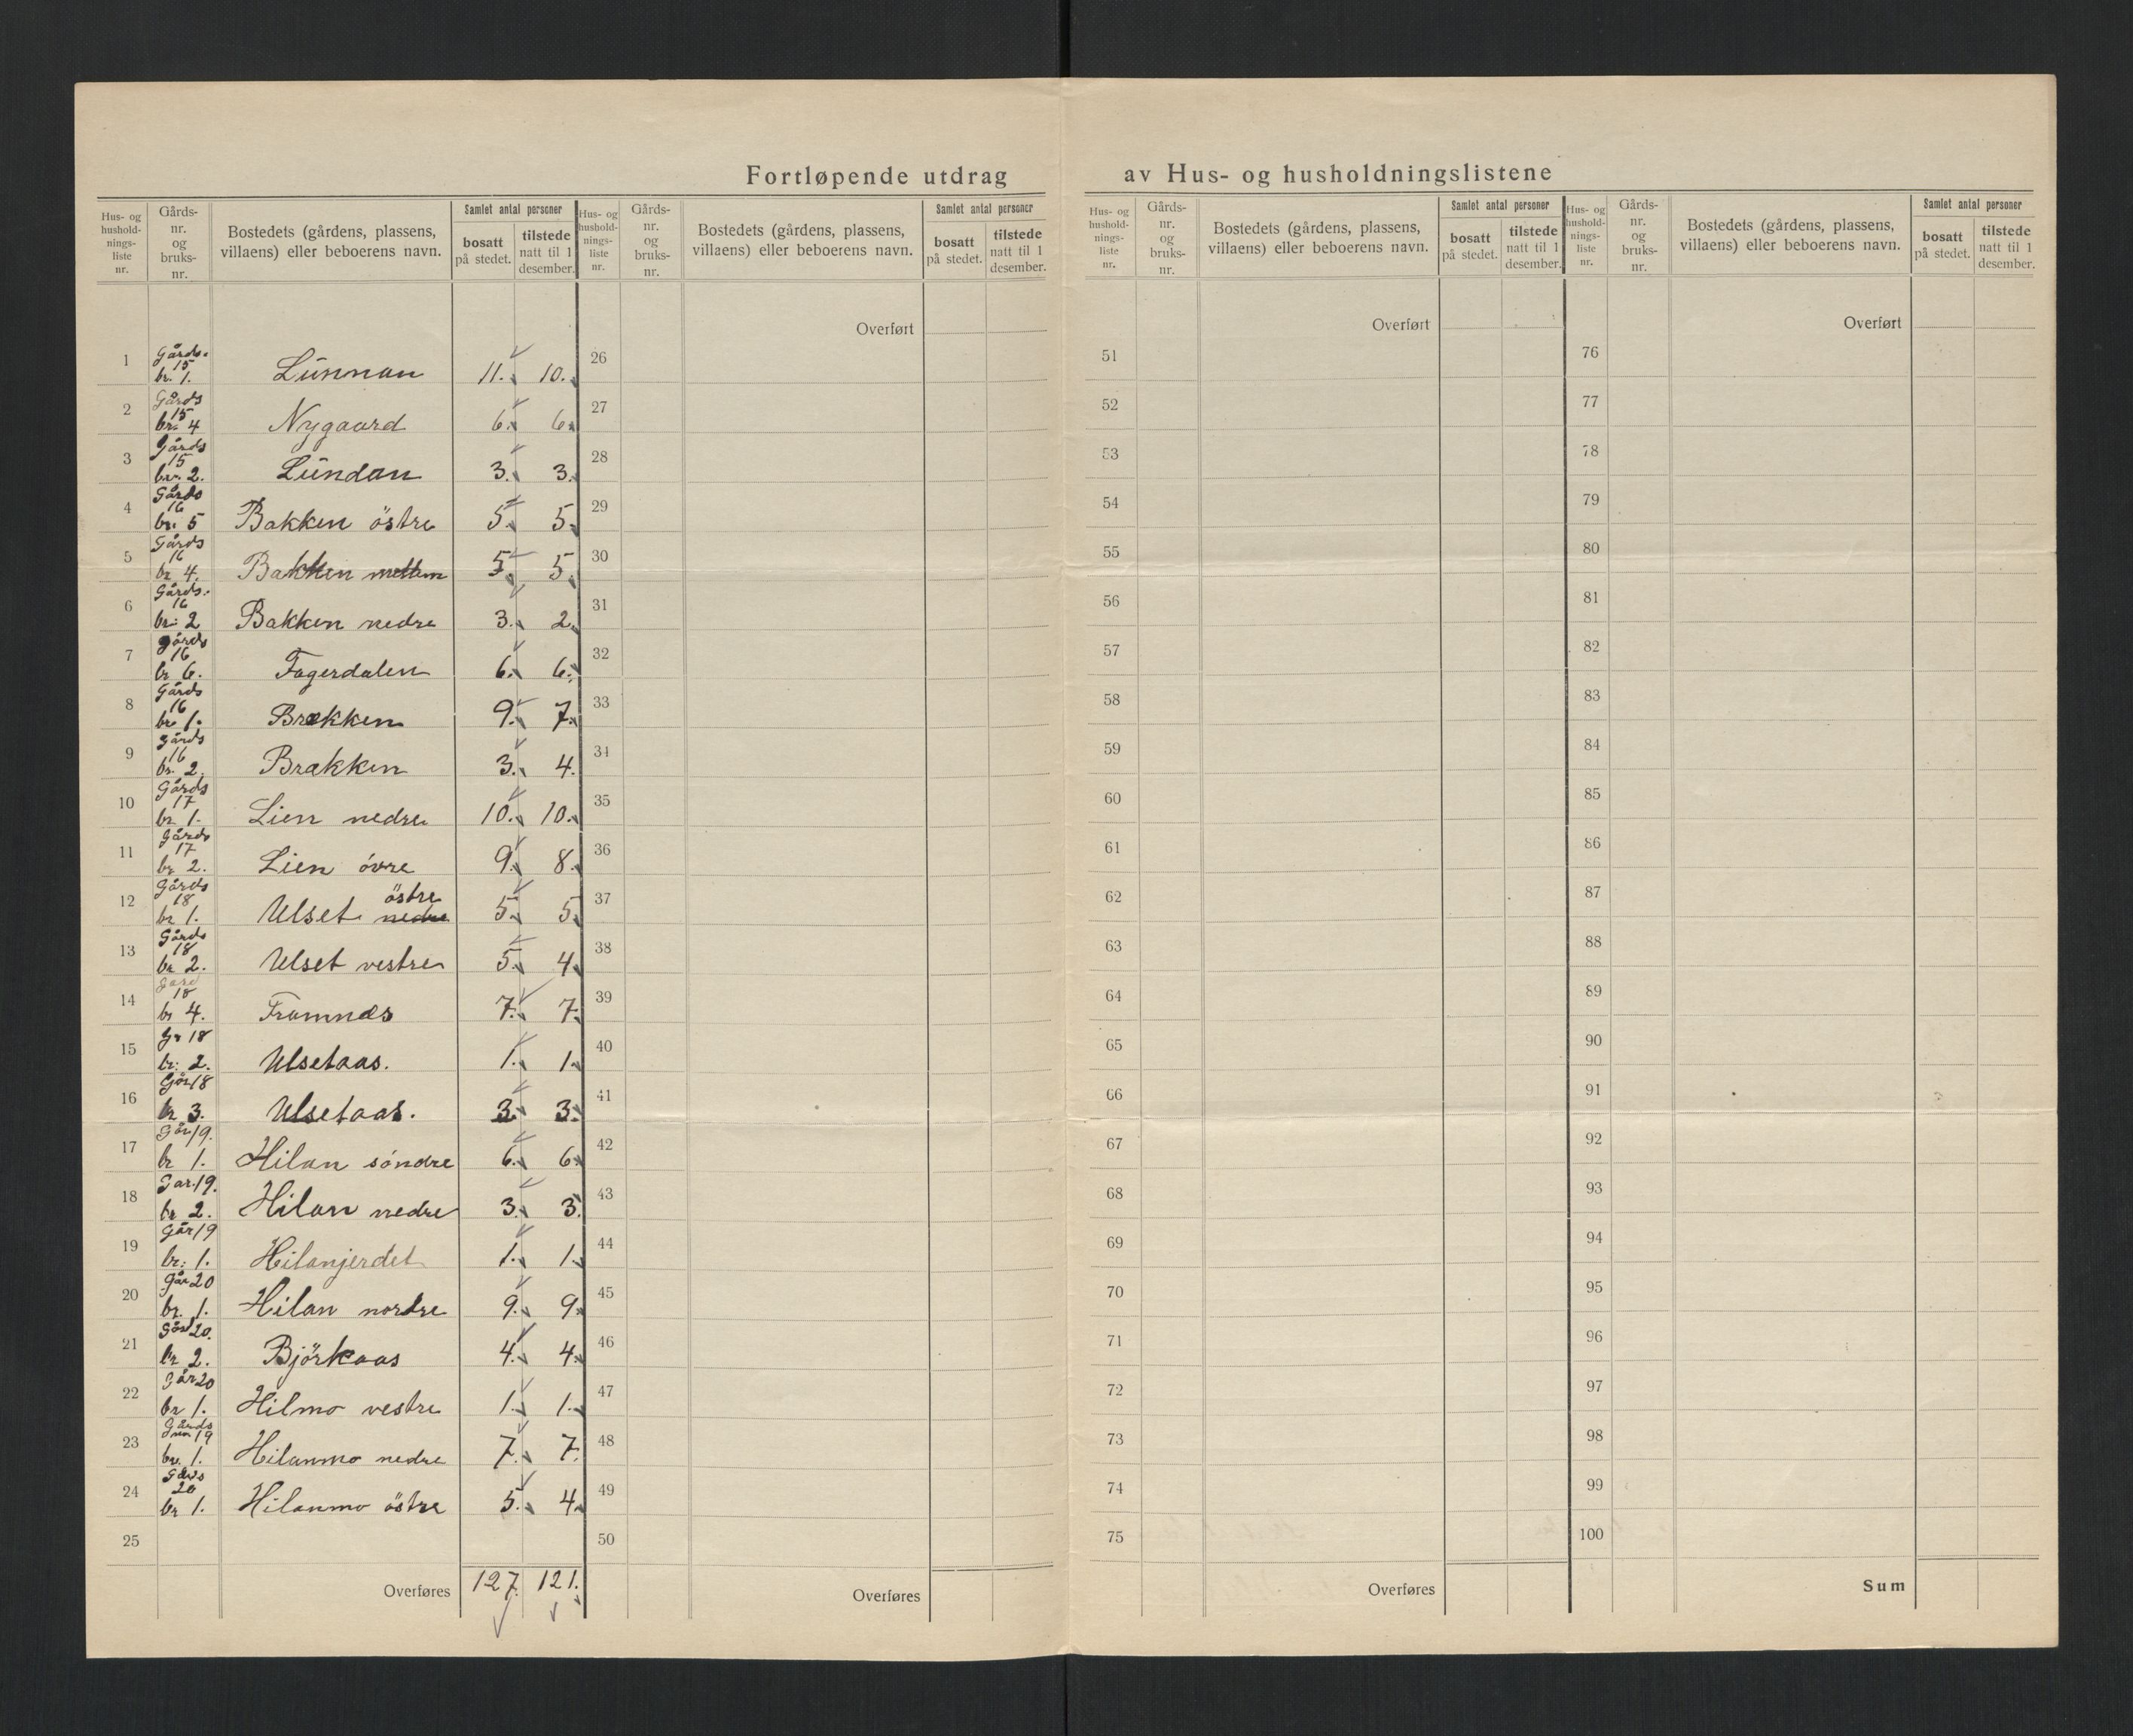 Fortløpende utdrag av Hus- og husholdningslistene
Hus- og hushold-nings-liste nr. Gårds-nr. og bruks-nr. Bostedets (gårdens, plassens, villaens) eller beboerens navn. Samlet antal personer bosatt på stedet. tilstede natt til 1 desember.
Hus- og hushold-nings-liste nr. Gårds-nr. og bruks-nr. Bostedets (gårdens, plassens, villaens) eller beboerens navn. Samlet antal personer bosatt på stedet. tilstede natt til 1 desember.
Hus- og hushold-nings-liste nr. Gårds-nr. og bruks-nr. Bostedets (gårdens, plassens, villaens) eller beboerens navn. Samlet antal personer bosatt på stedet. tilstede natt til 1 desember.
Hus- og hushold-nings-liste nr. Gårds-nr. og bruks-nr. Bostedets (gårdens, plassens, villaens) eller beboerens navn. Samlet antal personer bosatt på stedet. tilstede natt til 1 desember.
Overført Overført Overført
1 Gårds. 15 br. 1. Lunnan 11. 10. 26 51 76
2 Gårds 15 br. 4 Nygaard 6. 6. 27 52 77
3 Gårds 15 br. 2. Lundan 3. 3. 28 53 78
4 Gårds 16 br. 5 Bakken östre 5. 5. 29 54 79
5 Gårds 16 br 4. Bakken mellem 5. 5. 30 55 80
6 Gårds. 16 br. 2 Bakken nedre 3. 2. 31 56 81
7 gårds 16 br 6. Fagerdalen 6. 6. 32 57 82
8 Gårds 16 br. 1. Brækken 9. 7. 33 58 83
9 gårds 16 br. 2. Brækken 3. 4. 34 59 84
10 Gårds 17 br. 1. Lien nedre 10. 10. 35 60 85
11 Gårds 17 br 2. Lien övre 9. 8. 36 61 86
12 Gårds 18 br 1. Ulset nedre östre 5. 5. 37 62 87
13 Gårds 18 br 2. Ulset vestre 5. 4. 38 63 88
14 Gård 18 br 4. Framnæs 7. 7. 39 64 89
15 Gr 18 br. 2. Ulsetaas. 1. 1. 40 65 90
16 Går 18 br 3. Ulsetaas. 3. 3. 41 66 91
17 Går 19. br 1. Hilan söndre 6. 6. 42 67 92
18 Gar. 19. br 2. Hilan nedre 3. 3. 43 68 93
19 Går 19 br. 1. Hilanjerdet 1. 1. 44 69 94
20 Går 20 br. 1. Hilan nordre 9. 9. 45 70 95
21 Gård 20. br 2. Björkaas 4. 4. 46 71 96
22 Går 20 br 1. Hilmo vestre 1. 1. 47 72 97
23 Gårds 19 br. 1. Hilanmo nedre 7. 7. 48 73 98
24 Gårds 20 br 1. Hilanmo östre 5. 4. 49 74 99
25 50 75 100
Overføres 127. 121. Overføres Overføres Sum